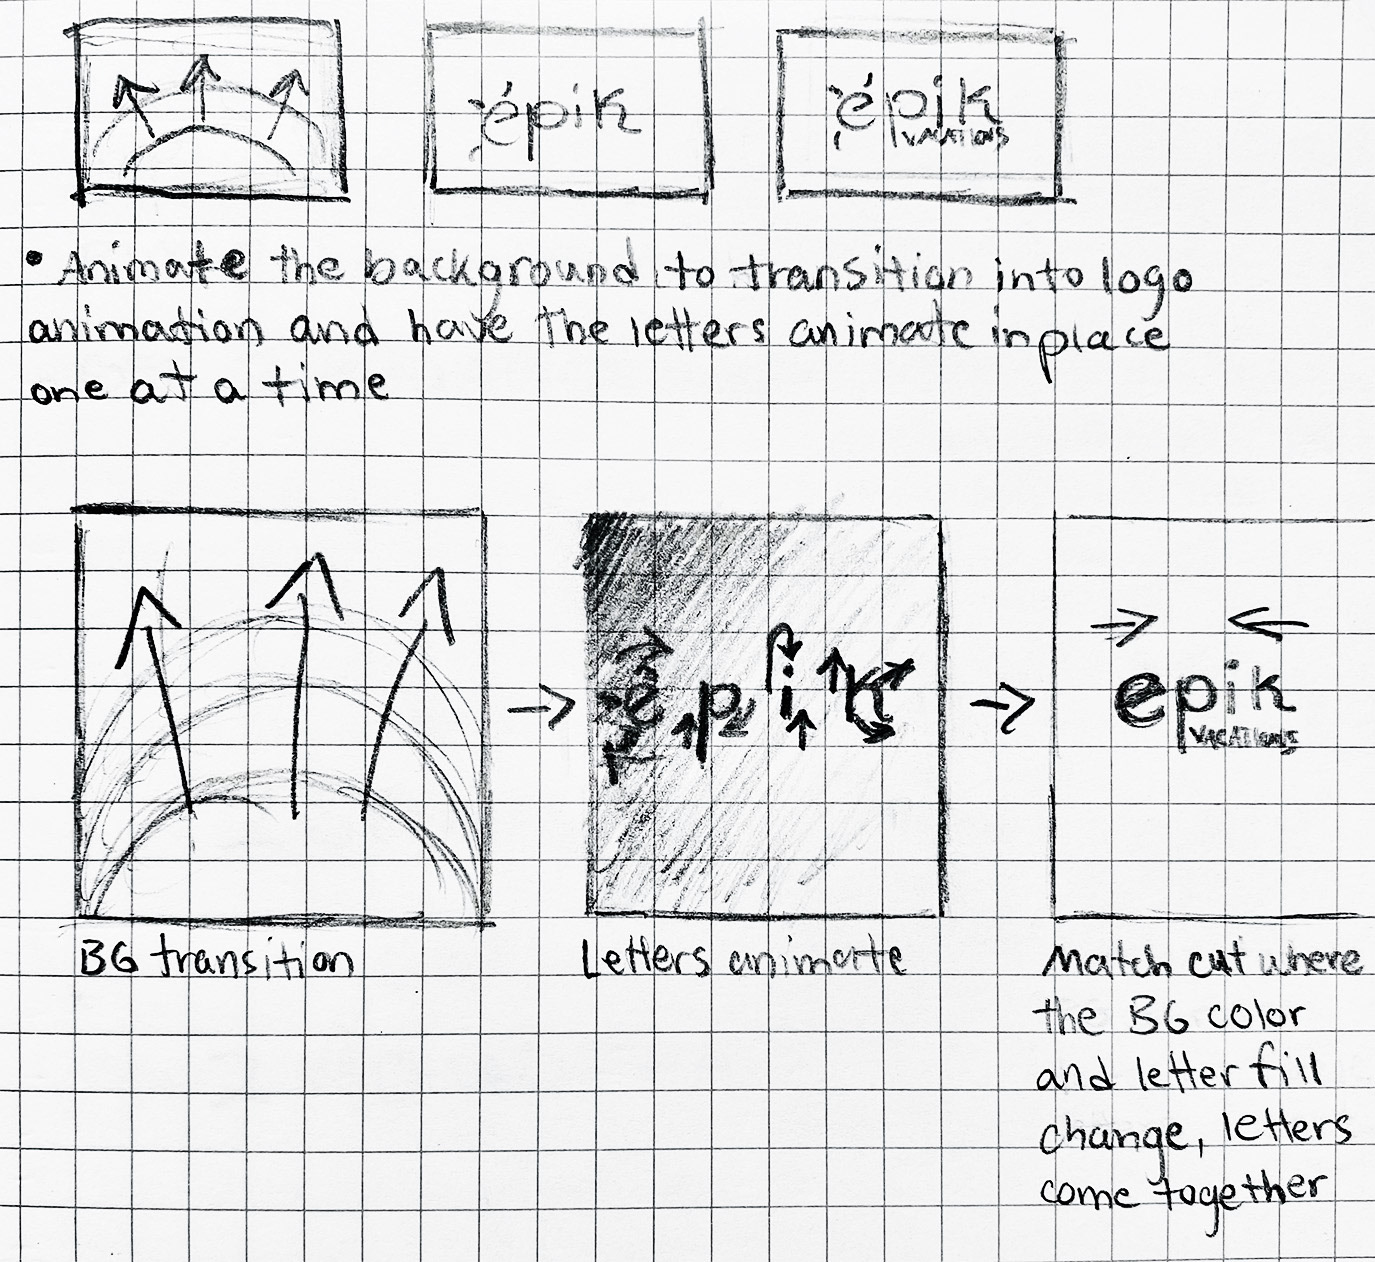 épik
épik
VACATIONS
• Animate the background to transition into logo
animation and have the letters animate in place
one at a time
e p i k
epik
VACATIONS
BG transition
Letters animate
Match cut where
the BG color
and letter fill
change, letters
come together